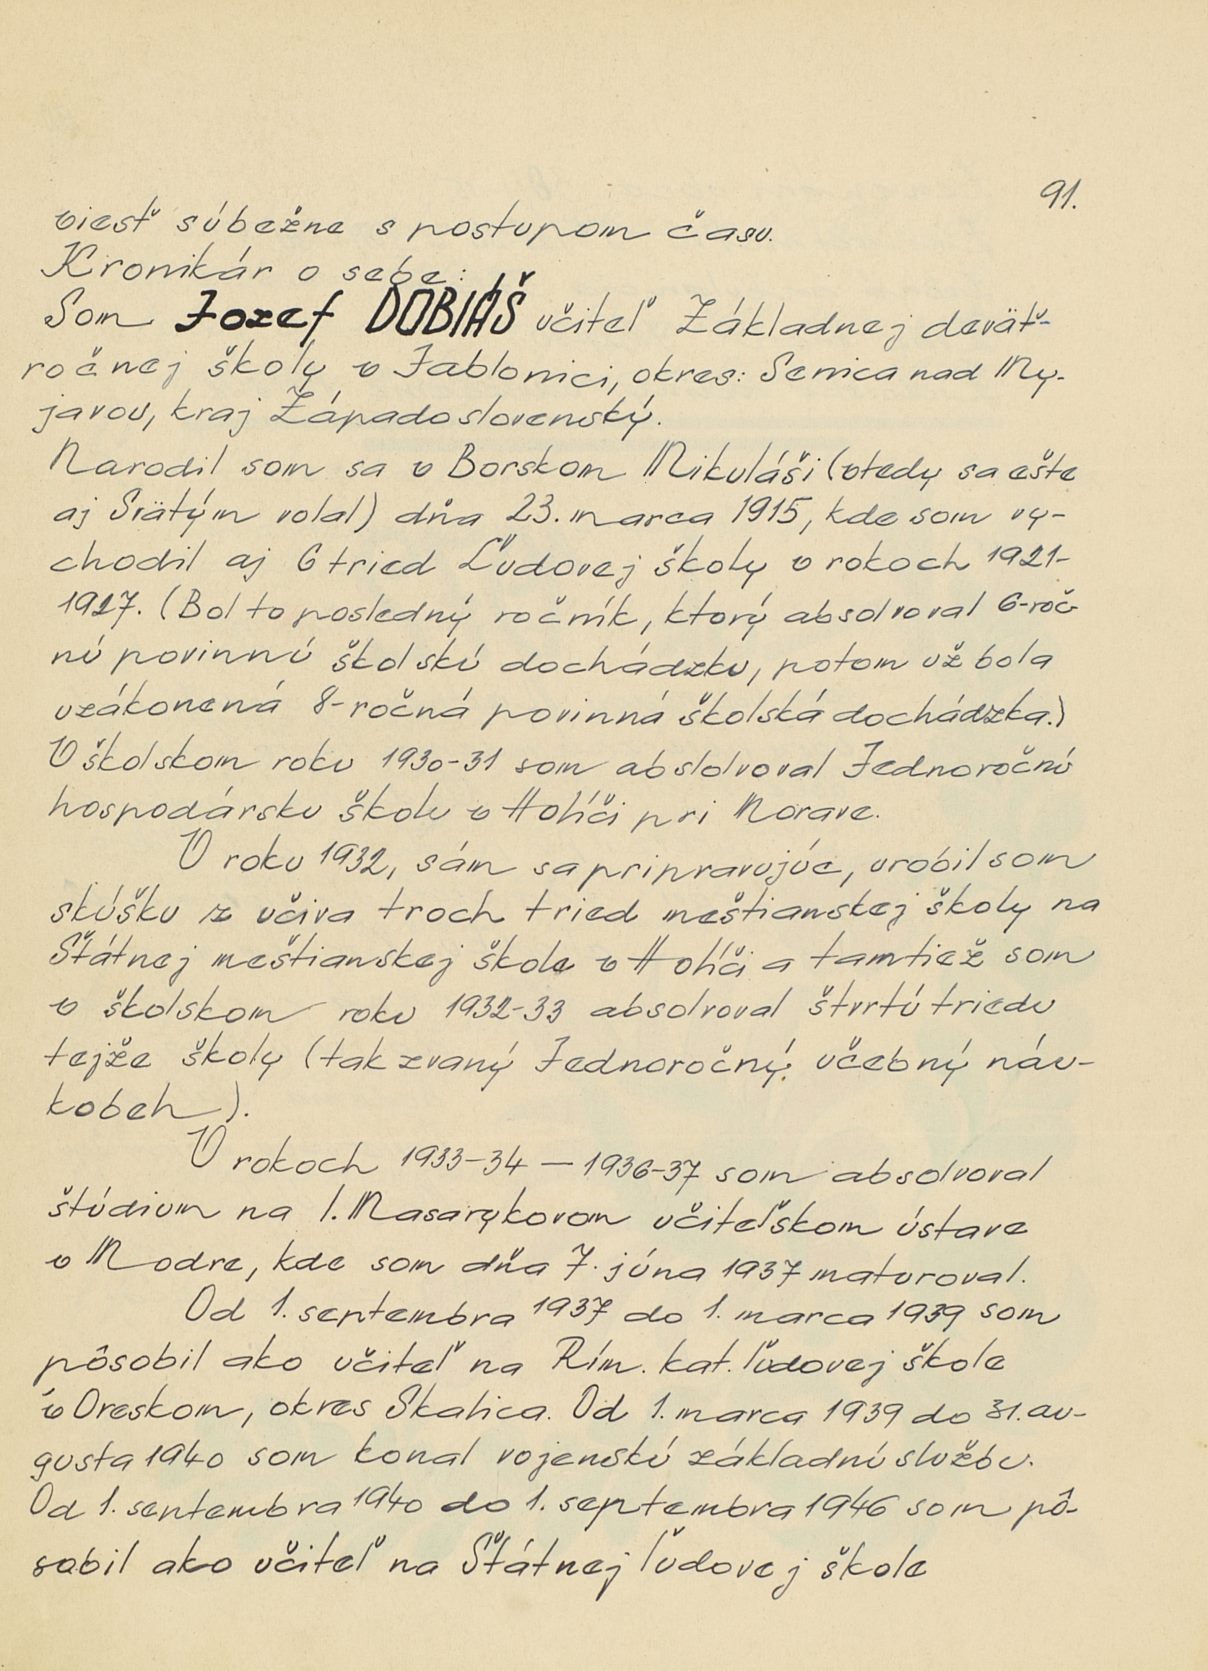 91.
viesť súbežne s postupom času.
Kronikár o sebe:
Som Jozef DOBIÁŠ učiteľ Základnej deväť-
ročnej školy v Jablonici, okres: Senica nad My-
javou, kraj Západoslovenský.
Narodil som sa v Borskom Mikuláši (vtedy sa ešte
aj Svätým volal) dňa 23. marca 1915, kde som vy-
chodil aj 6 tried Ľudovej školy v rokoch 1921-
1927. (Bol to posledný ročník, ktorý absolvoval 6-roč-
nú povinnú školskú dochádzku, potom už bola
uzákonená 8-ročná povinná školská dochádzka.)
V školskom roku 1930-31 som abslolvoval Jednoročnú
hospodársku školu v Holíči pri Morave.
V roku 1932, sám sa pripravujúc, urobil som
skúšku z učiva troch tried meštianskej školy na
Štátnej meštianskej škole v Holíči a tamtiež som
v školskom roku 1932-33 absolvoval štvrtú triedu
tejže školy (tak zvaný Jednoročný učebný náu-
kobeh).
V rokoch 1933-34 — 1936-37 som absolvoval
štúdium na I. Masarykovom učiteľskom ústave
v Modre, kde som dňa 7. júna 1937 maturoval.
Od 1. septembra 1937 do 1. marca 1939 som
pôsobil ako učiteľ na Rím. kat. ľudovej škole
v Oreskom, okres Skalica. Od 1. marca 1939 do 31. au-
gusta 1940 som konal vojenskú základnú službu.
Od 1. sentembra 1940 do 1. septembra 1946 som pô-
sobil ako učiteľ na Štátnej ľudovej škole